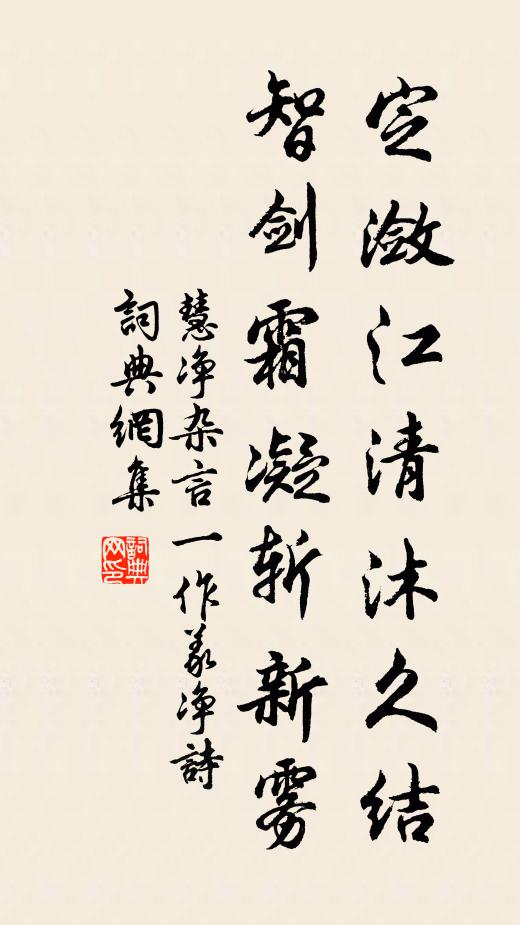 定潋江清沐久结
智剑霜凝斩新雾
慧净杂言一作义净詩
詞典網集
詞典网印